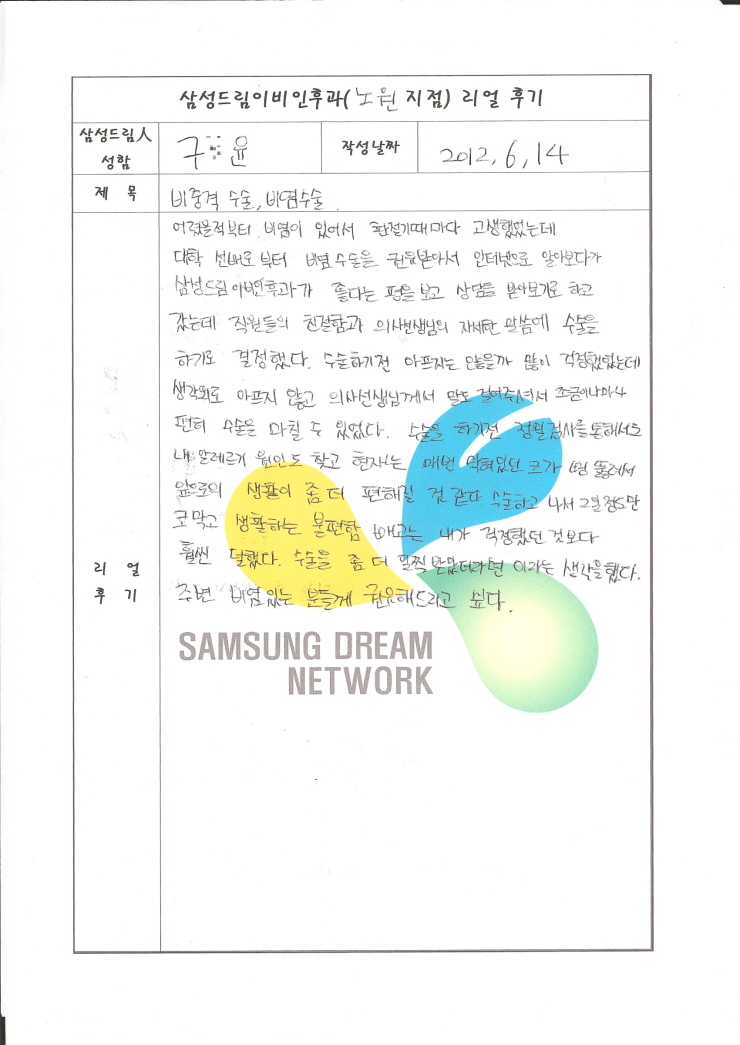 삼성드림이비인후과(노원 지점) 리얼 후기
삼성드림人 성함
구 윤
작성날짜
2012, 6, 14
제 목
비중격 수술, 비염수술.
리 얼 후 기
어렸을적부터 비염이 있어서 환절기때마다 고생했었는데
대학 선배로부터 비염수술을 권유받아서 인터넷으로 알아보다가
삼성드림이비인후과가 좋다는 평을 보고 상담을 받아보기로 하고
갔는데 직원들의 친절함과 의사선생님의 자세한 말씀에 수술을
하기로 결정했다. 수술하기전 아프지는 않을까 많이 걱정했었는데
생각외로 아프지 않고 의사선생님께서 말도 걸어주셔서 조금이나마
편히 수술을 마칠 수 있었다. 수술을 하기전 정밀검사를 통해서도
내 알레르기 원인도 찾고 현재는 매번 막혀있던 코가 뻥 뚫려서
앞으로의 생활이 좀 더 편해질 것 같다. 수술하고 나서 2일정도만
코막고 생활하는 불편함 빼고는 내가 걱정했던 것보다
훨씬 덜했다. 수술을 좀 더 일찍 받았더라면 이라는 생각을 했다.
주변 비염있는 분들께 권유해드리고 싶다.
SAMSUNG DREAM
NETWORK